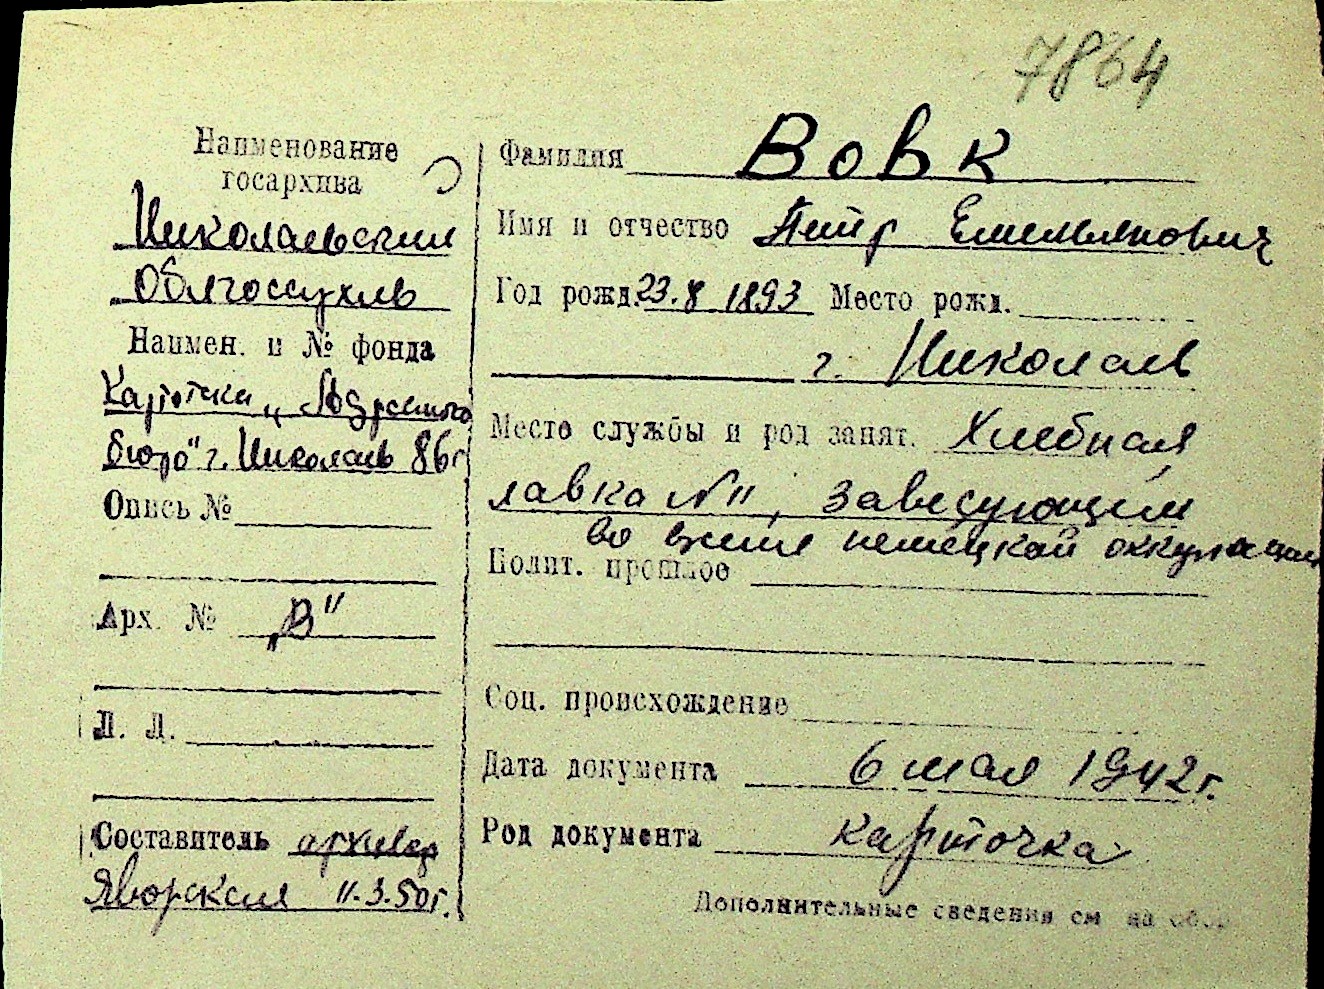 7864
Наименование
госархива
Николаевский
Облгосархив
Наимен. и № фонда
Картотека „Адресного
бюро" г. Николаев
Опись №
Арх. № „В"
Л. Л.
Составитель архивар
Яворская 11.3.50г.
Фамилия Вовк
Имя и отчество Петр Емельянович
Год рожд. 23.8 1893 Место рожд.
г. Николаев
Место службы и род занят. Хлебная
лавка №11, заведующим
во время немецкой оккупации
Полит. прошлое
Соц. происхождение
Дата документа 6 мая 1942г.
Род документа карточка
Дополнительные сведения см на обор